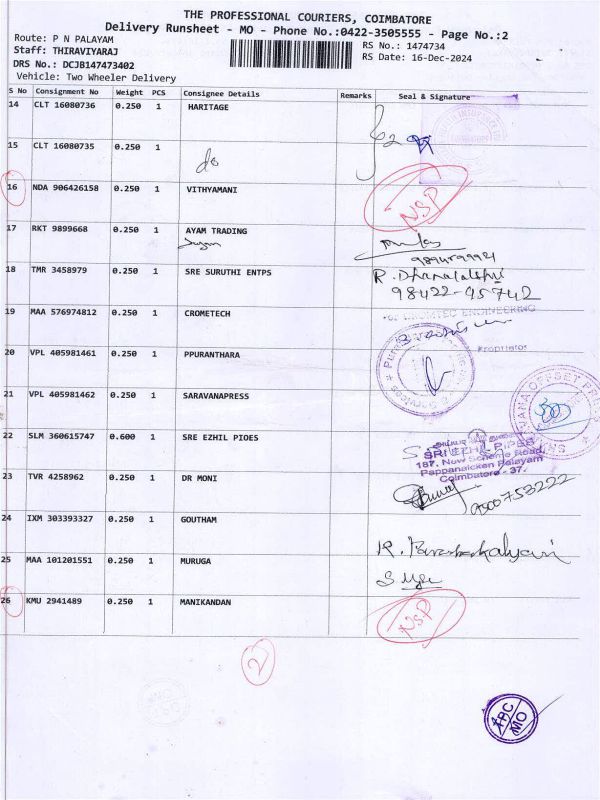 THE PROFESSIONAL COURIERS, COIMBATORE
Delivery Runsheet - MO - Phone No.:0422-3505555 - Page No.:2
Route: P N PALAYAM
RS No.: 1474734
Staff: THIRAVIYARAJ
RS Date: 16-Dec-2024
DRS No.: DCJB147473402
Vehicle: Two Wheeler Delivery
S No Consignment No Weight PCS Consignee Details Remarks Seal & Signature
14 CLT 16080736 0.250 1 HARITAGE
15 CLT 16080735 0.250 1
do
16 NDA 906426158 0.250 1 VITHYAMANI NSP
17 RKT 9899668 0.250 1 AYAM TRADING
18 TMR 3458979 0.250 1 SRE SURUTHI ENTPS
98422-45742
19 MAA 576974812 0.250 1 CROMETECH
ENGINEERING
Proprietor
20 VPL 405981461 0.250 1 PPURANTHARA
21 VPL 405981462 0.250 1 SARAVANAPRESS
22 SLM 360615747 0.600 1 SRE EZHIL PIOES
SRI EZHIL PIPES
187, New Scheme Road,
Pappanaicken Palayam
Coimbatore - 37.
23 TVR 4258962 0.250 1 DR MONI
9500753222
24 IXM 303393327 0.250 1 GOUTHAM
25 MAA 101201551 0.250 1 MURUGA
26 KMU 2941489 0.250 1 MANIKANDAN NSP
2
ABC
MO